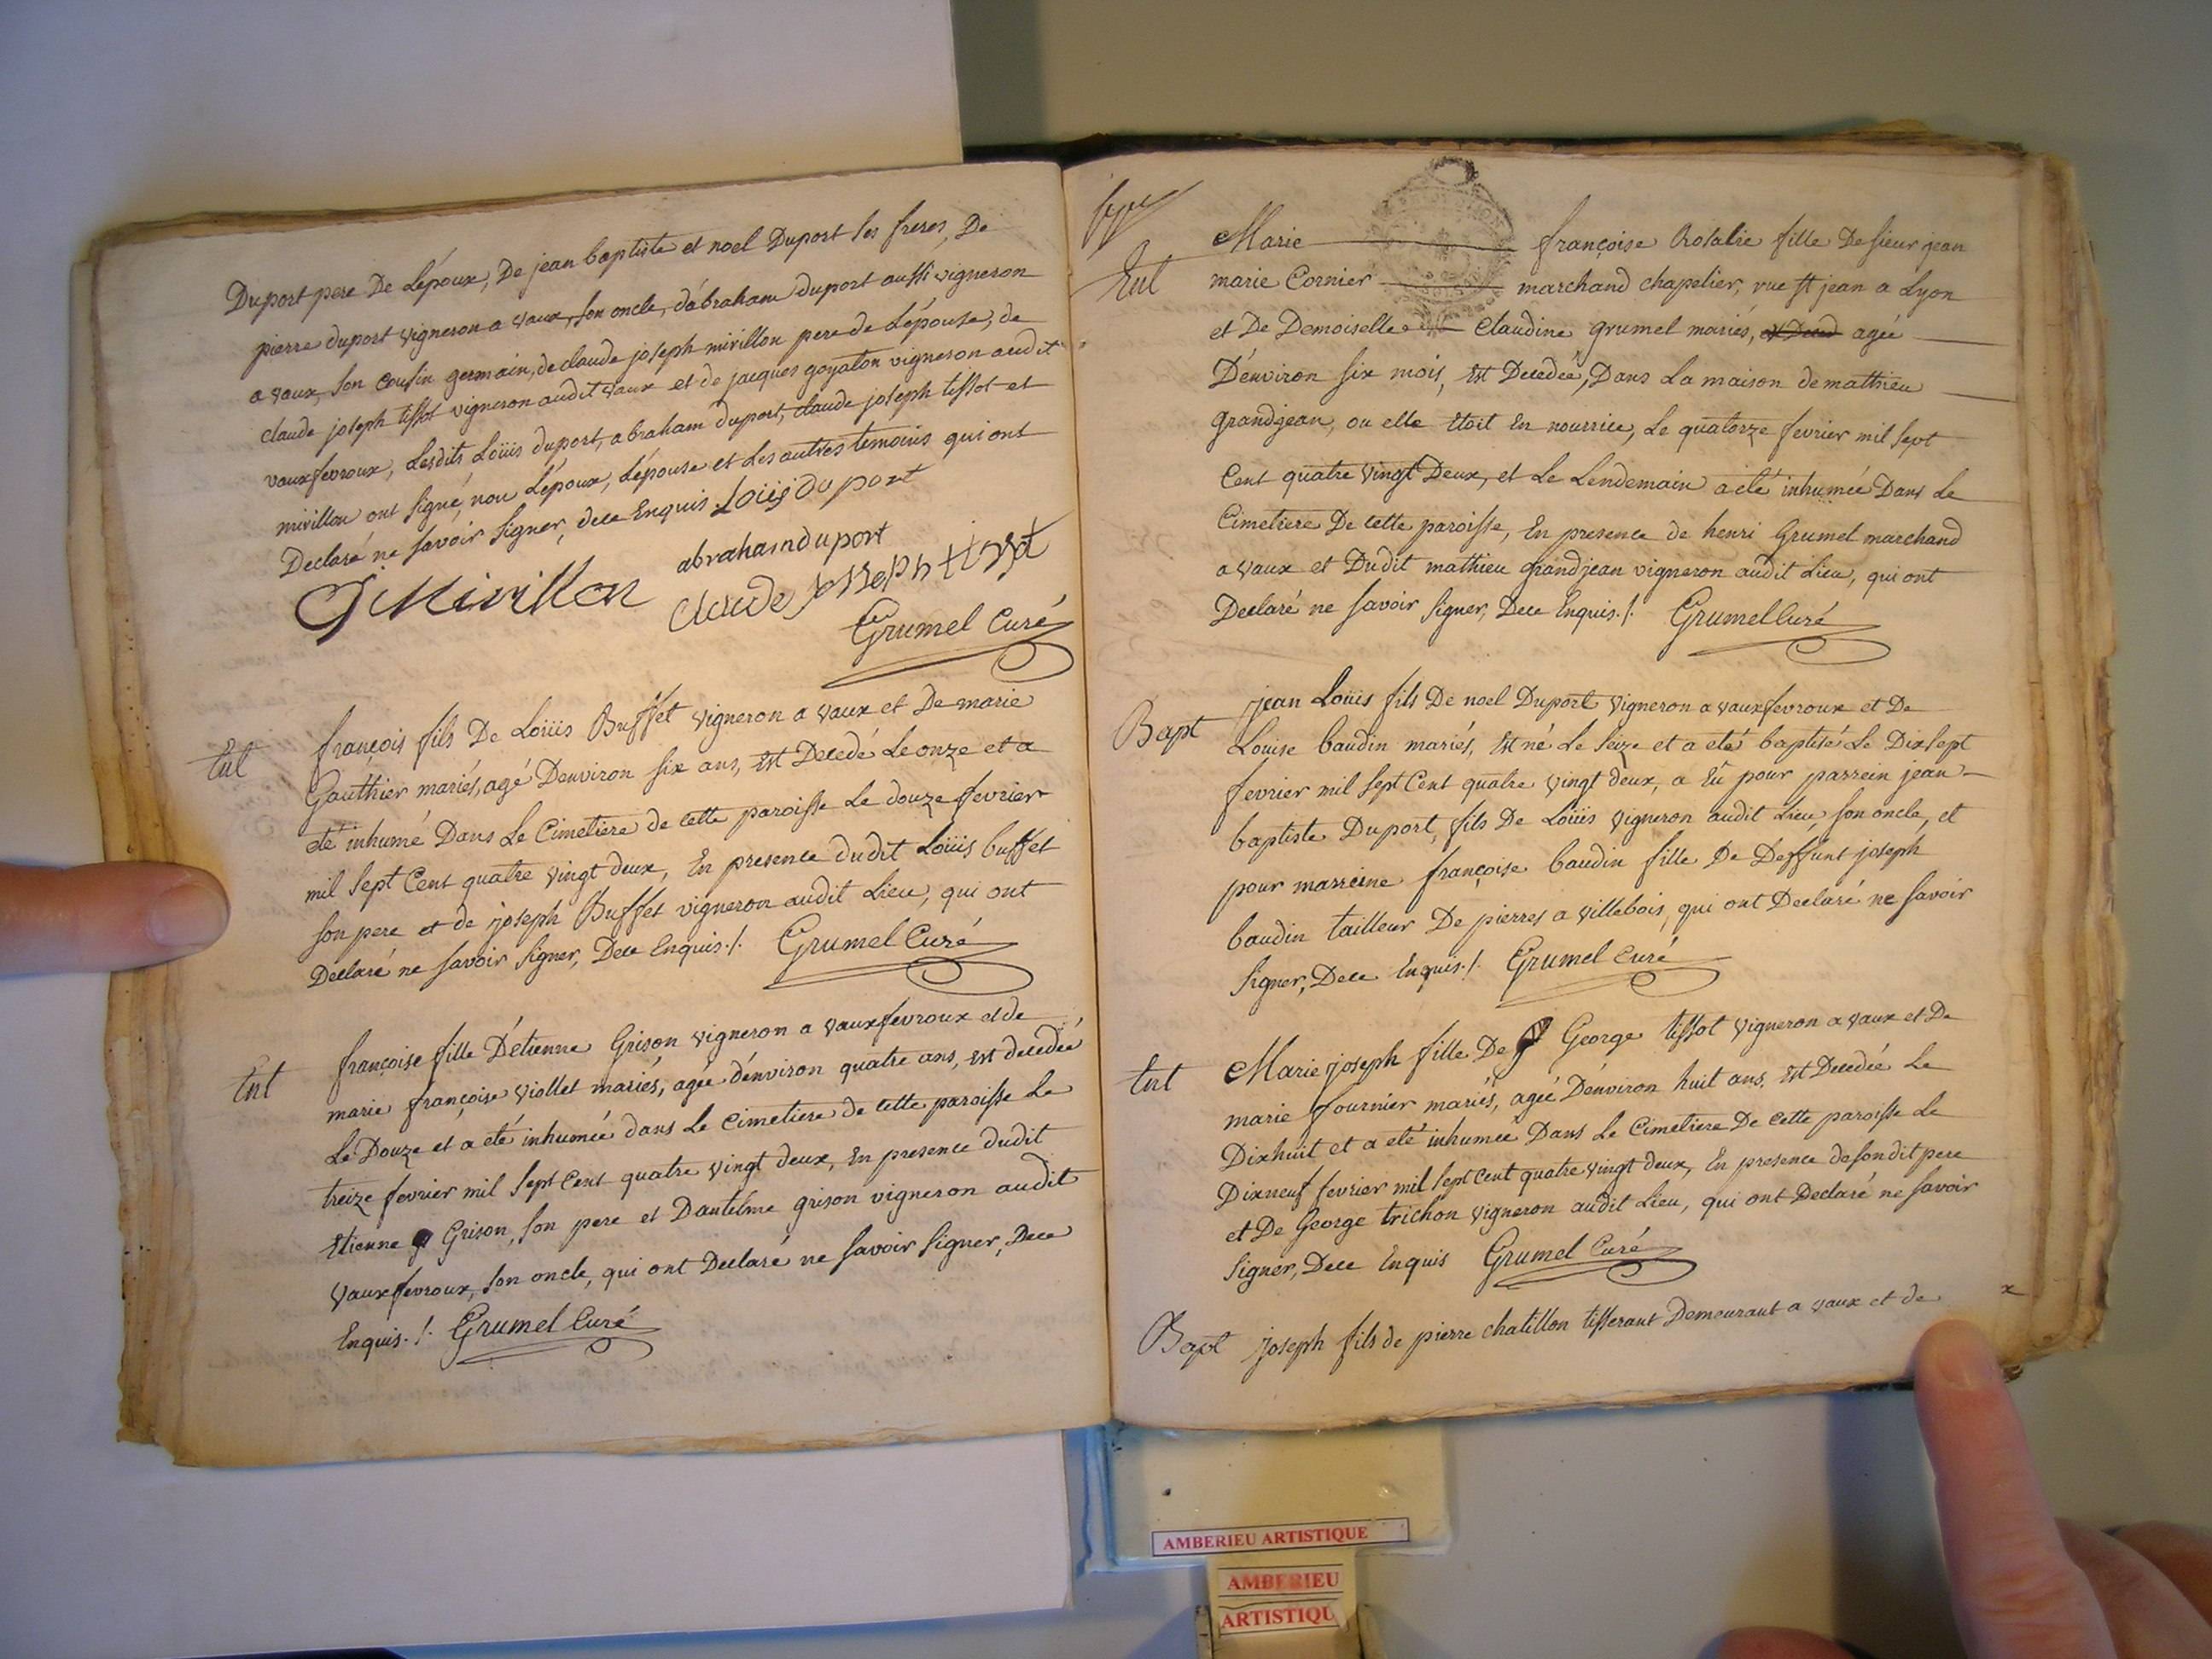 Duport pere De L'époux, De jean baptiste et noel Duport ses freres, De
pierre duport vigneron a vaux, son oncle, d'abraham duport aussi vigneron
a vaux, son cousin germain, de claude joseph mivillon pere de L'épouse, de
claude joseph tissot vigneron audit vaux et de jacques goyaton vigneron audit
vauxfevroux, Lesdits Loüis duport, abraham duport, claude joseph tissot et
mivillon ont signé, non L'époux, L'épouse et Les autres temoins qui ont
Declaré ne savoir signer, dece Enquis. Loüis duport
abraham duport
Mivillon claude joseph tissot
Grumel Curé
Ent françois fils De Loüis Buffet vigneron a vaux et De marie
Gauthier mariés, agé D'environ six ans, Est Decedé Le onze et a
eté inhumé Dans Le Cimetiere de cette paroisse Le douze fevrier
mil sept Cent quatre vingt deux, En presence dudit Loüis buffet
son pere et de joseph Buffet vigneron audit Lieu, qui ont
Declaré ne savoir signer, Dece Enquis./. Grumel Curé
Ent françoise fille D'étienne Grison vigneron a vauxfevroux et de
marie françoise viollet mariés, agée d'environ quatre ans, est decedée
Le Douze et a eté inhumée dans Le Cimetiere de cette paroisse Le
treize fevrier mil sept Cent quatre vingt deux, En presence dudit
Etienne Grison, son pere et D'antelme grison vigneron audit
vauxfevroux, son oncle, qui ont Declaré ne savoir signer, Dece
Enquis./. Grumel Curé
Ent Marie françoise Rosalie fille De sieur jean
marie Cornier marchand chapelier, rue St jean a Lyon
et De Demoiselle Claudine grumel mariés, agée
D'environ six mois, Est Decedée, Dans La maison de matthieu
grandjean, ou elle Etoit En nourrice, Le quatorze fevrier mil sept
Cent quatre vingt Deux, et Le Lendemain a eté inhumée Dans Le
Cimetiere De cette paroisse, En presence de henri Grumel marchand
a vaux et Dudit mathieu grandjean vigneron audit Lieu, qui ont
Declaré ne savoir signer, Dece Enquis./. Grumel Curé
Bapt jean Loüis fils De noel Duport vigneron a vauxfevroux et De
Louise baudin mariés, Est né Le seize et a eté baptisé Le Dixsept
fevrier mil sept Cent quatre vingt deux, a Eû pour parrein jean
baptiste Duport, fils De Loüis vigneron audit Lieu, son oncle, et
pour marreine françoise baudin fille De Deffunt joseph
baudin tailleur De pierres a villebois, qui ont Declaré ne savoir
signer, Dece Enquis./. Grumel Curé
Ent Marie joseph fille De George tissot vigneron a vaux et De
marie fournier mariés, agée D'environ huit ans, Est Decedée Le
Dixhuit et a eté inhumée Dans Le Cimetiere De cette paroisse Le
Dixneuf fevrier mil sept Cent quatre vingt deux, En presence desondit pere
et De George trichon vigneron audit Lieu, qui ont Declaré ne savoir
signer, Dece Enquis Grumel Curé
Bapt joseph fils de pierre chatillon tisserant Demeurant a vaux et de
AMBERIEU ARTISTIQUE
AMBERIEU
ARTISTIQU